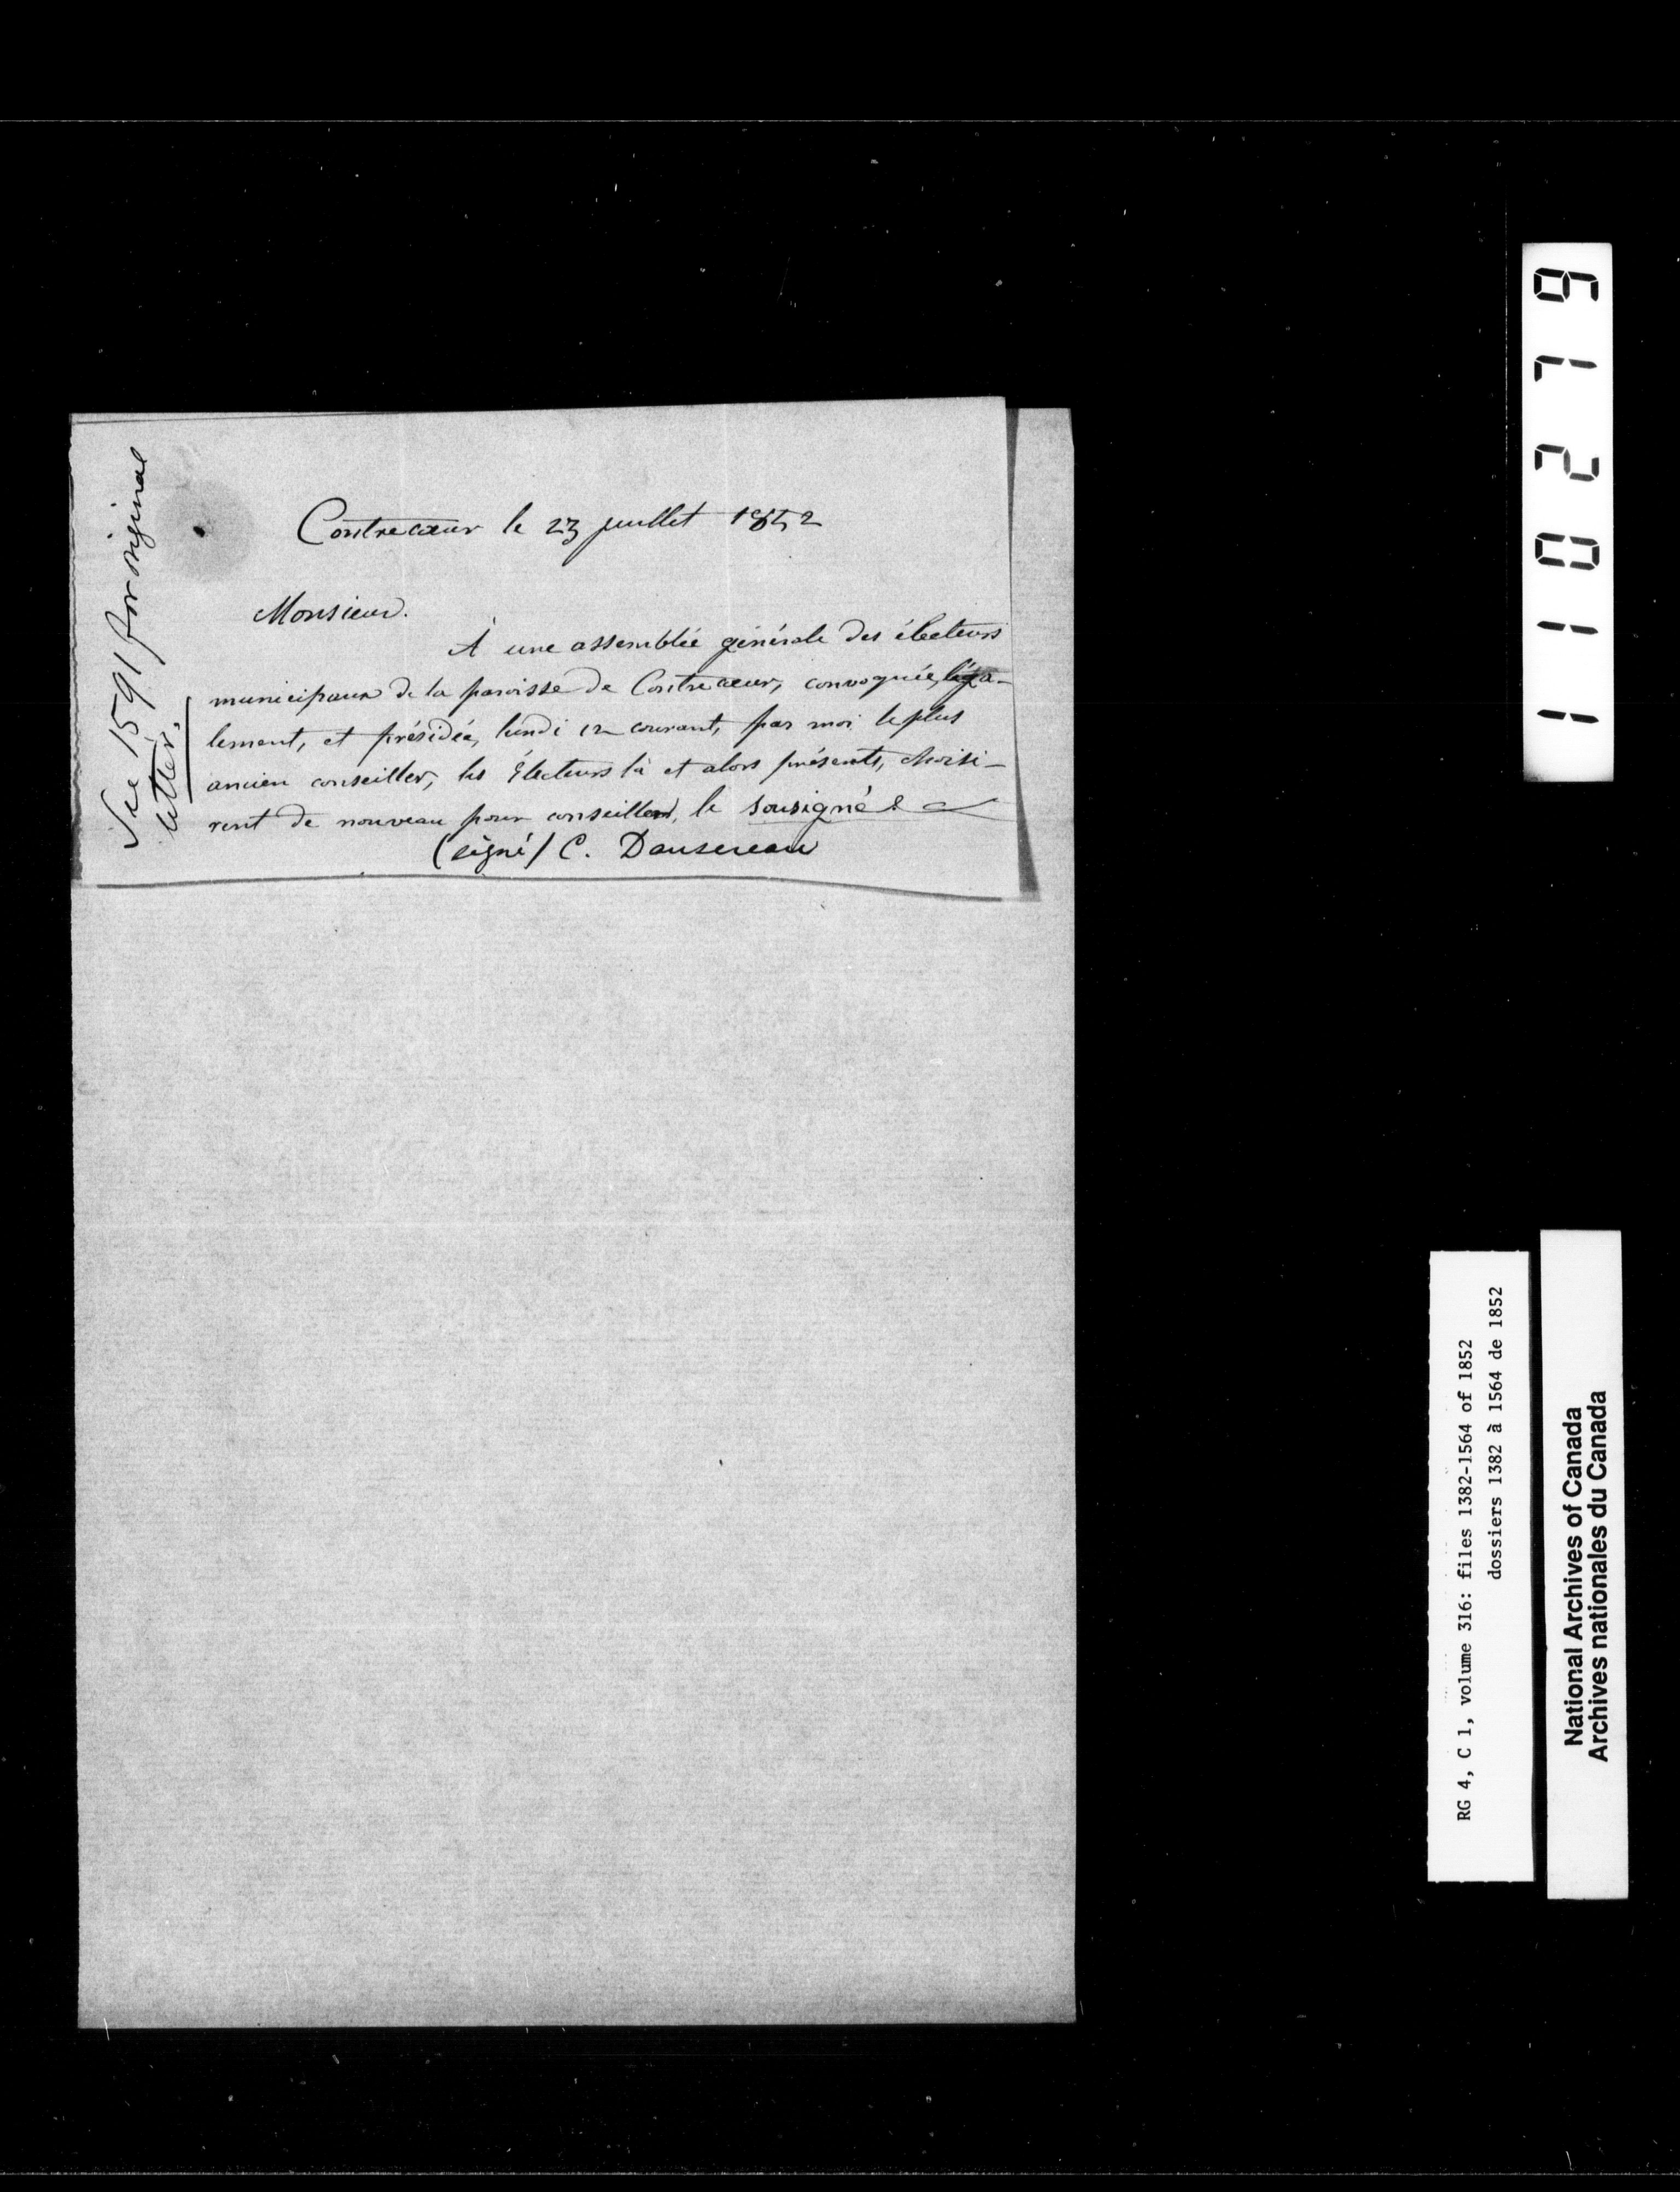 See 1591 for original
letter.
Contrecœur le 23 juillet 1852
Monsieur.
À une assemblée générale des électeurs
municipaux de la paroisse de Contrecœur, convoquée, léga-
lement, et présidée, lundi 12 courant, par moi le plus
ancien conseiller, les Électeurs là et alors présents, choisi-
rent de nouveau pour conseillers, le sousigné &
(signé) C. Dansereau
110279
RG 4, C 1, volume 316: files 1382-1564 of 1852
dossiers 1382 à 1564 de 1852
National Archives of Canada
Archives nationales du Canada